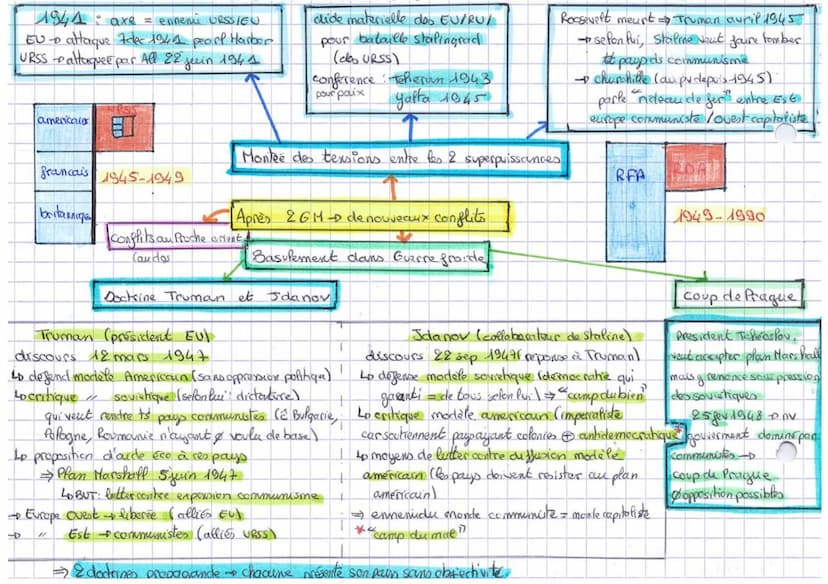 1941 : axe = ennemi URSS/EU
EU → attaque 7dec 1941 pearl Harbor
URSS → attaquée par All 22 juin 1941
aide materielle des EU/RU/
pour bataille stalingrad
(des URSS)
conférence : Teheran 1943
pour paix Yalta 1945
Roosevelt meurt ⇒ Truman avril 1945
→ selon lui, Staline veut faire tomber
tt pays ds communisme
→ churchille (au pv depuis 1945) :
parle "rideau de fer" entre Est
europe communiste / ouest capitaliste
americains
français
britannique
1945-1949
Montée des tensions entre les 2 superpuissances
RFA
RDA
1949-1990
Après 2GM → de nouveaux conflits
Conflits au Proche orient
Basulement dans Guerre froide
Doctrine Truman et Jdanov
Coup de Prague
Truman (président EU)
discours 12 mars 1947
↳ défend modèle Americain (sans oppression politique)
↳ critique " soviétique (selon lui : dictature)
qui veut rendre ts pays communistes (ê Bulgarie,
Pologne, Roumanie n'ayant ø voulu de base)
↳ proposition d'aide éco à ces pays
⇒ Plan Marshall 5 juin 1947
↳ BUT : lutter contre expansion communisme
→ Europe Ouest → libérée (alliés EU)
→ " Est → communistes (alliés URSS)
Jdanov (collaborateur de Staline)
discours 22 sep 1947 (reponse à Truman)
↳ défense modèle sovietique (démocratie qui
garanti = de tous selon lui) ⇒ "camp du bien"
↳ critique modèle américain (imperialiste
car soutiennent pays ayant colonies ⊕ antidemocratique*
↳ moyens de lutter contre diffusion modèle
américain (les pays doivent resister au plan
américain)
⇒ ennemi du monde communiste = monde capitaliste
* "camp du mal"
President Tchécoslov.
veut accepter plan Marshall
mais y renonce sous pression
des sovietiques
25 fev 1948 → nv
gouverment dominé par
communistes →
coup de Prague
ø opposition possibles
⇒ 2 doctrines propagande → chacune présente son pays sans objectivité